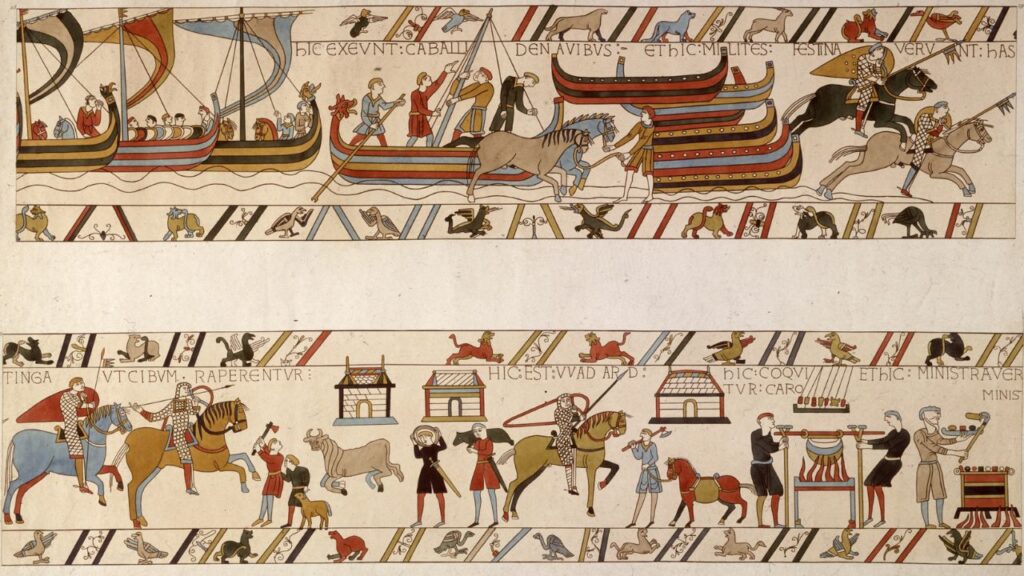 HIC EXEVNT: CABALLI DENAVIBVS:- ETHIC: MILITES: FESTINAVERVNT: HAS
TINGA VTCIBVM RAPERENTVR: HIC: EST: VVADARD: hIC: COQVI ETHIC: MINISTRAVER
TVR: CARO MINIS